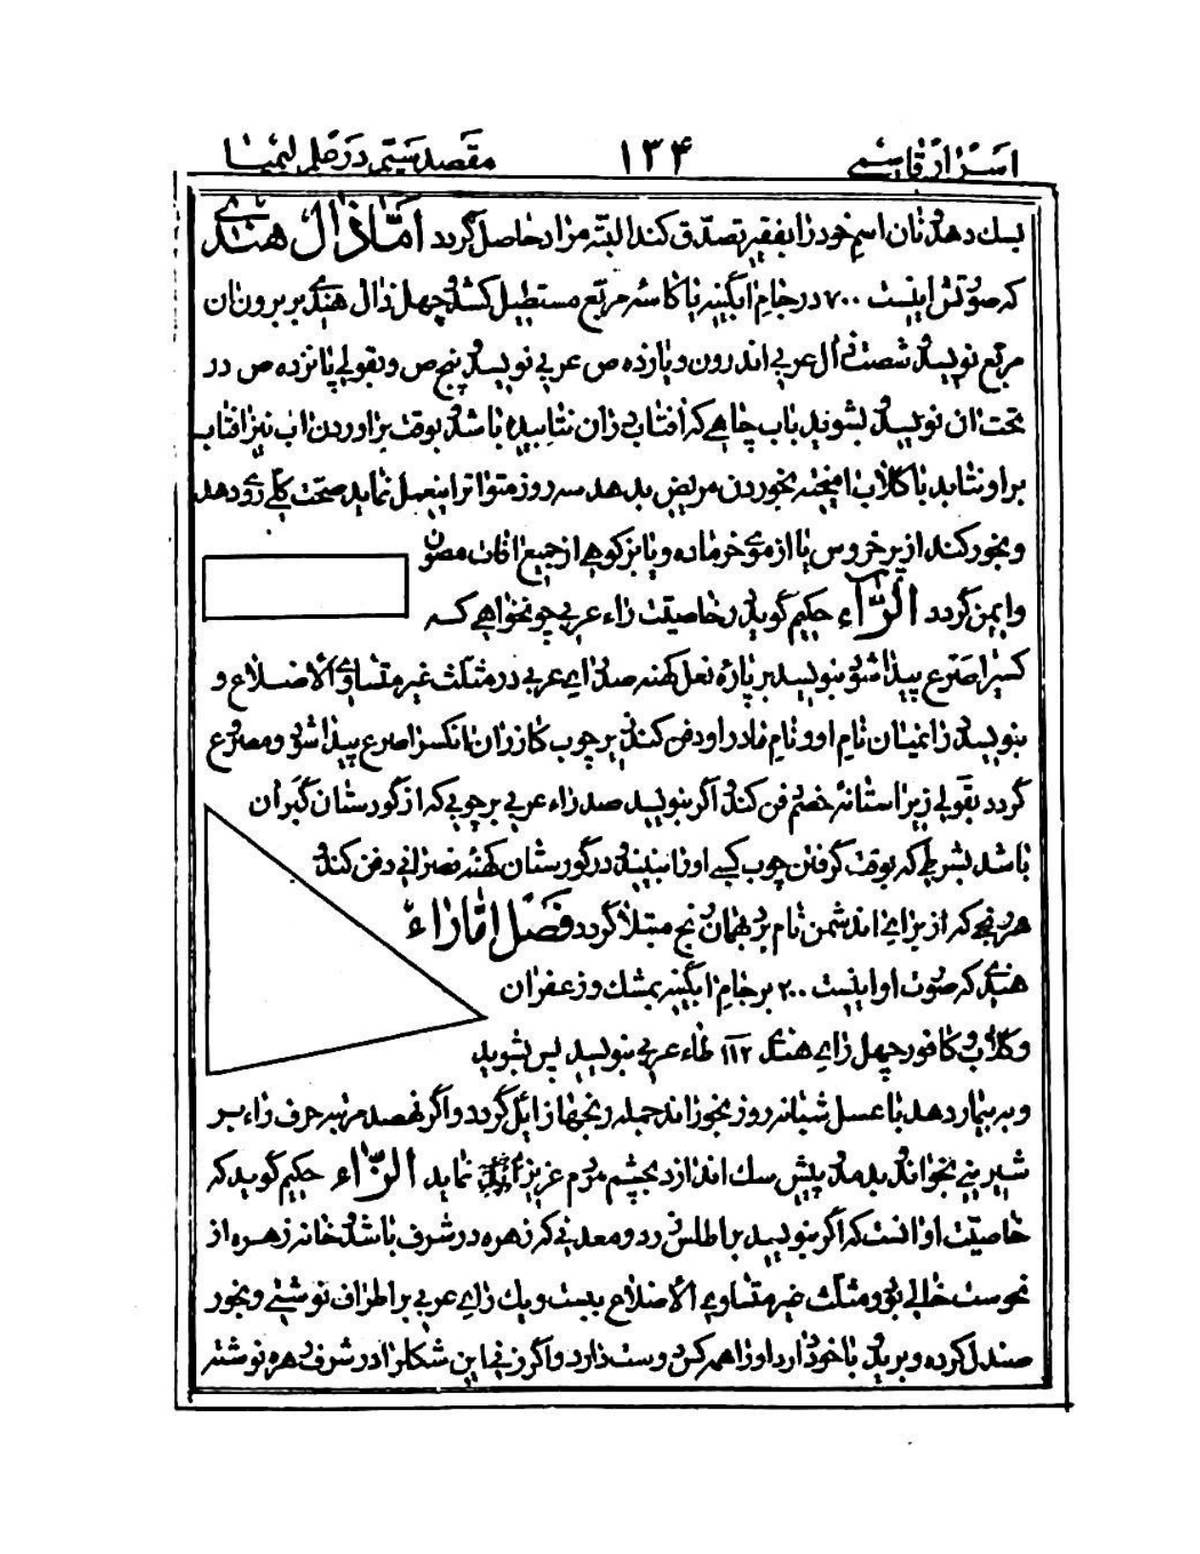 اسرار قاسمی ۱۳۴ مقصد سیّم در علم لیمیا
بسك دهد نان اسم خود را بفقیر تصدّق کند البتّه مراد حاصل گردد امّا ذال هندی
که صورتش اینست ۷۰۰ در جام آبگینه یا کاسه مربّع مستطیل کشد و چهل ذال هندی بر برون آن
مربّع نویسد و شصت ذال عربی اندرون و یازده ص عربی نویسد و پنج ص و بقولی پانزده ص در
تحت آن نویسد و بشوید باب چاهی که آفتاب بر آن نتابیده باشد و بوقت برآوردن آب نیز آفتاب
بر او نتابد با گلاب آمیخته بخوردن مریض بدهد سه روز متواتر اینعمل نماید صحّت کلّی روی دهد
و بخور کند از پر خروس یا از موی خر ماده و یا بز کوهی از جمیع آفات مصون
و ایمن گردد الرّاء حکیم گوید در خاصیّت راء عربی چو نخواهی که
کسیرا صرع پیدا شود بنویسد بر پاره نعل کهنه صد رای عربی در مثلّث غیر متساوی الاضلاع و
بنویسد در آنمیان نام او و نام مادر او و دفن کند زیر چوب کازران آنکس را صرع پیدا شود و مصروع
گردد بقولی زیر آستانه خصم دفن کند و اگر بنویسد صد راء عربی بر چوبی که از گورستان گبران
باشد بشرطی که بوقت گرفتن چوب کسی او را نبیند و در گورستان کهنه نصرانی دفن کند
هر رنجی که از برای آندشمن نام برد بهمان رنج مبتلا گردد فصل امّا راء
هندی که صورت او اینست ۲۰۰ بر جام آبگینه بمشك و زعفران
و گلاب و کافور چهل رای هندی ۱۱۲ طاء عربی بنویسد پس بشوید
و به بیمار دهد با عسل شبانه روز بخوراند جمله رنجها زایل گردد و اگر نهصد مرتبه حرف راء بر
شیرینی بخواند و بدمد و پیش سك اندازد بچشم مردم عزیز نماید الزّاء حکیم گوید که
خاصیّت او آنست که اگر بنویسد بر اطلس زرد و معدنی که زهره در شرف باشد و خانه زهره از
نحوست خالی بود و مثلّث غیر متساوی الاضلاع بیست و یك زای عربی بر اطراف نوشتی و بخور
صندل کرده و برید با خود دارد او را همه کس دوست دارد و اگر زنی این شکل را در شرف زهره نوشته